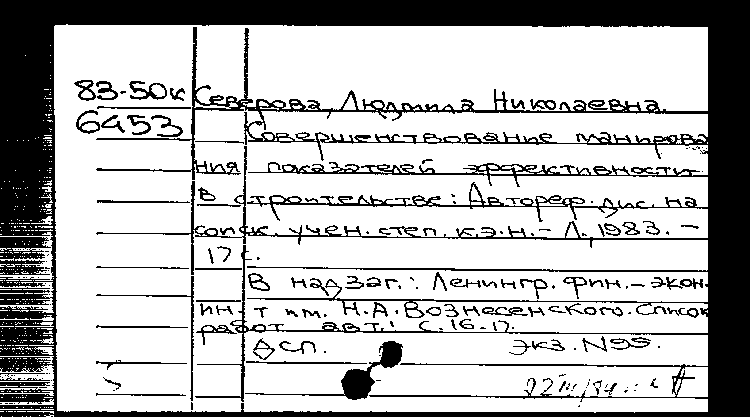 83-50к Северова, Людмила Николаевна.
6453 Совершенствование манирова
ния показателей эффективности
в строительстве: Автореф. дис. на
соиск. учен. степ. к.э.н. - Л., 1983. -
17 с.
В надзаг.: Ленингр. фин. - экон.
ин-т им. Н.А. Вознесенского. Список
работ авт.: с. 16-17.
ДСП. Экз. N 99.